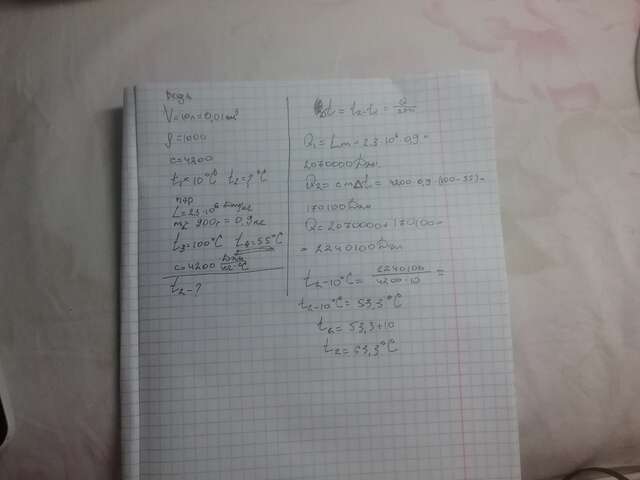 Вода
V=10л=0,01м³
ρ=1000
c=4200
t₁=10°C t₂=?°C
пар
L=2,3·10⁶ Дж/кг
m=900г=0,9кг
t₃=100°C t₄=55°C
c=4200 Дж/кг·°C
t₂-?
Δt=t₂-t₁=Q/cm
Q₁=Lm=2,3·10⁶·0,9=
2070000Дж
Q₂=cmΔt=4200·0,9·(100-55)=
170100Дж
Q=2070000+170100=
=2240100Дж
t₂-10°C=2240100/4200·10=
t₂-10°C=53,3°C
t₂=53,3+10
t₂=63,3°C